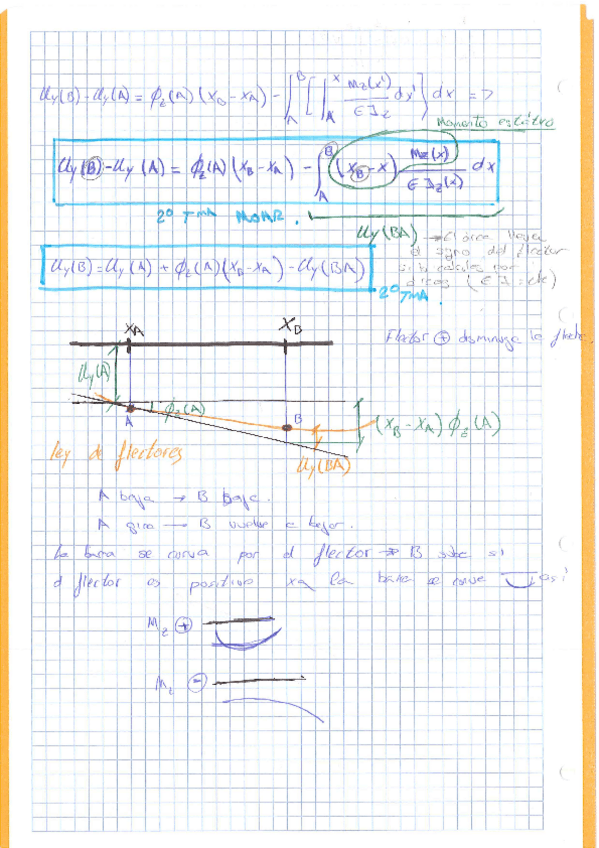 Uy(B) - Uy(A) = ϕz(A) (XB - XA) - ∫_A^B [∫_A^x Mz(x')/(E Iz) dx'] dx =>
Momento estático
Uy(B) - Uy(A) = ϕz(A) (XB - XA) - ∫_A^B (XB - x) Mz(x)/(E Iz(x)) dx
2º TMA MOHR.
Uy(BA) → El área lleva
el signo del flector
si la calculas por
áreas (E I = cte)
Uy(B) = Uy(A) + ϕz(A) (XB - XA) - Uy(BA)
2º TMA.
Flector ⊕ disminuye la flecha
XA XB
Uy(A)
ϕz(A)
A B
(XB - XA) ϕz(A)
Uy(BA)
Ley de flectores
A baja → B baja.
A gira → B vuelve a bajar.
La barra se curva por el flector → B sube si
el flector es positivo xq la barra se curva así
Mz ⊕
Mz ⊖